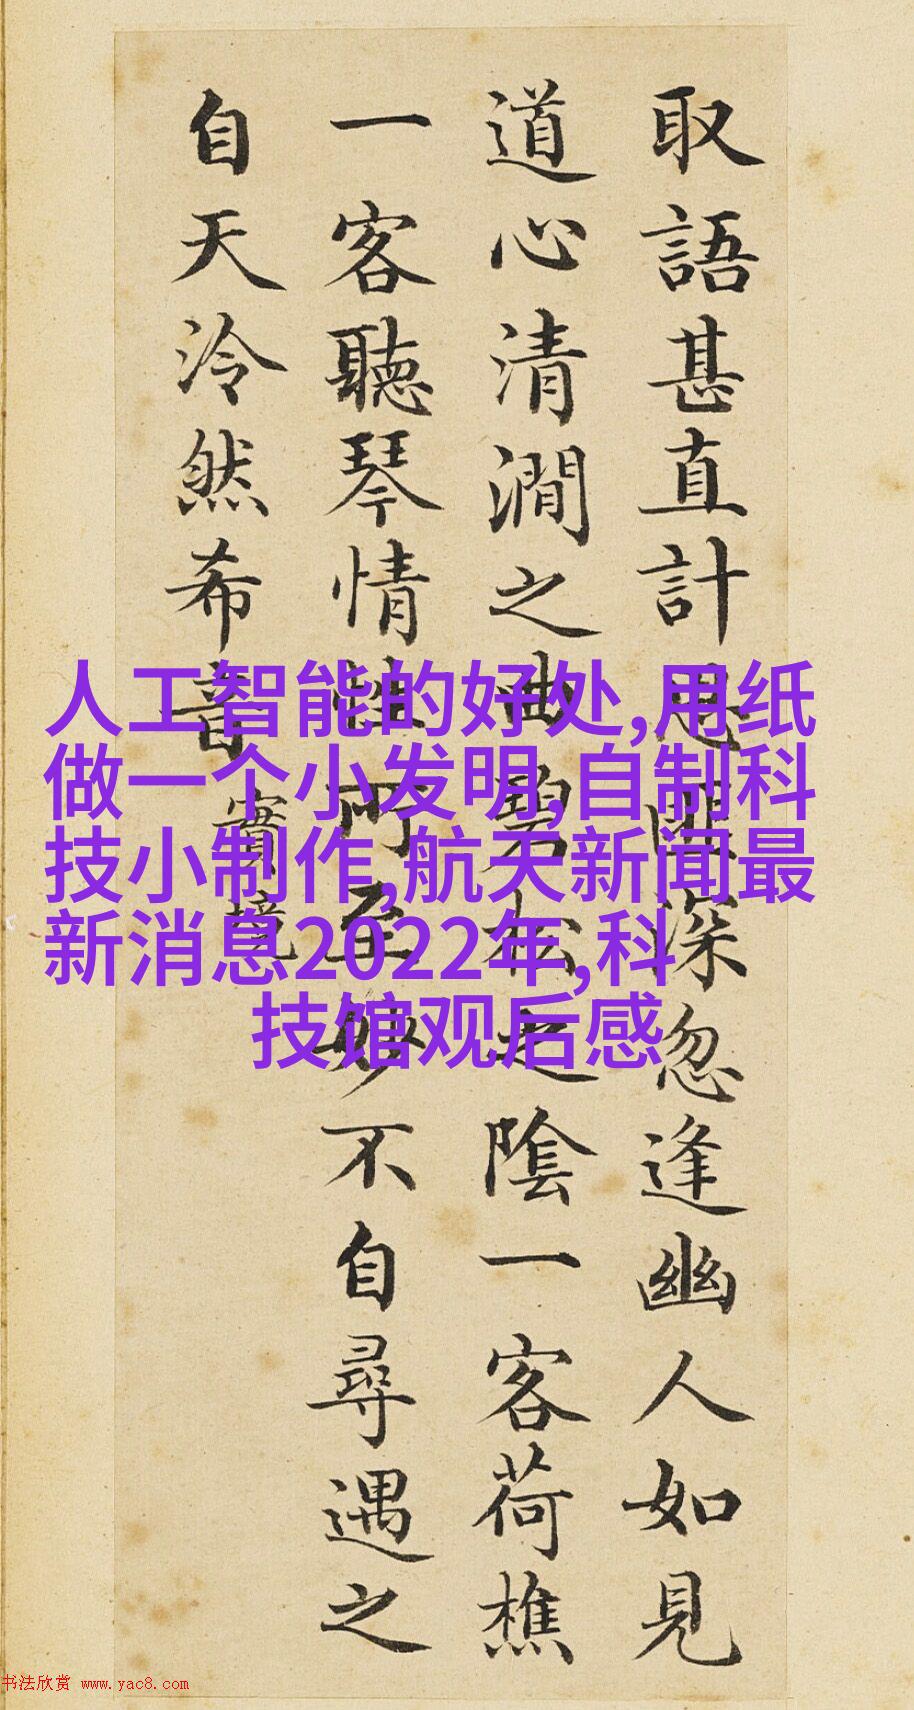 取語甚直計思匪深忽逢幽人如見
道心清澗之曲碧松之陰一客荷樵
一客聽琴情性所至妙不自尋遇之
自天泠然希音
實境
人工智能的好处,用纸
做一个小发明,自制科
技小制作,航天新闻最
新消息2022年,科
技馆观后感
书法欣赏 www.yac8.com